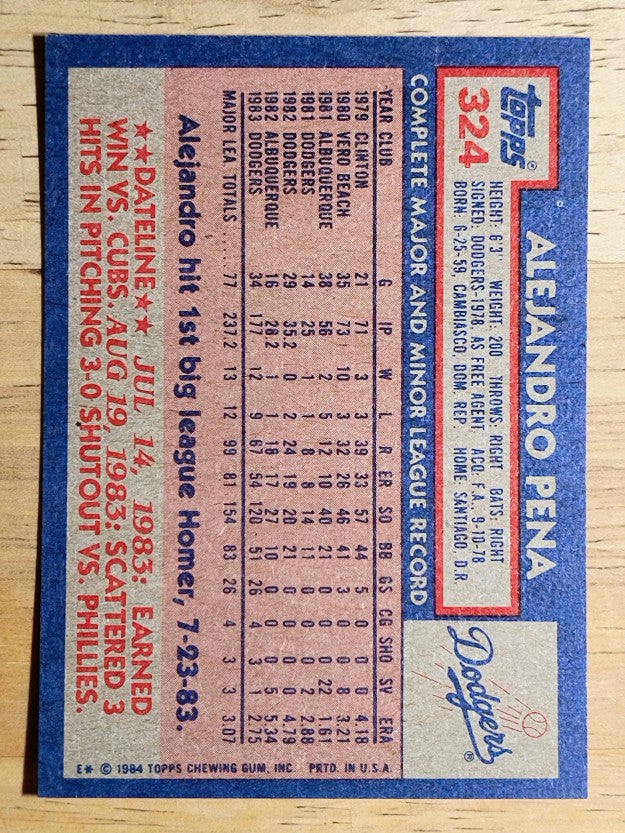 topps®
324
ALEJANDRO PENA
HEIGHT: 6'3" WEIGHT: 200 THROWS: RIGHT BATS: RIGHT
SIGNED: DODGERS-1978, AS FREE AGENT ACQ: F.A., 9-10-78
BORN: 6-25-59, CAMBIASCO, DOM. REP. HOME: SANTIAGO, D.R.
Dodgers®
COMPLETE MAJOR AND MINOR LEAGUE RECORD
YEAR CLUB G IP W L R ER SO BB GS CG SHO SV ERA
1979 CLINTON 21 71 3 3 39 33 57 44 5 0 0 0 4.18
1980 VERO BEACH 35 73 10 3 32 26 46 41 3 0 0 8 3.21
1981 ALBUQUERQUE 38 56 2 5 12 10 40 21 0 0 0 22 1.61
1981 DODGERS 14 25 1 1 8 8 14 11 0 0 0 2 2.88
1982 DODGERS 29 35.2 0 2 24 19 20 21 0 0 0 0 4.79
1982 ALBUQUERQUE 16 28.2 1 1 18 17 27 10 0 0 0 5 5.34
1983 DODGERS 34 177 12 9 67 54 120 51 26 4 3 1 2.75
MAJOR LEA. TOTALS .... 77 237.2 13 12 99 81 154 83 26 4 3 3 3.07
Alejandro hit 1st big league Homer, 7-23-83.
★★DATELINE★★ JUL 14, 1983: EARNED
WIN VS. CUBS. AUG 19, 1983: SCATTERED 3
HITS IN PITCHING 3-0 SHUTOUT VS. PHILLIES.
E* © 1984 TOPPS CHEWING GUM, INC. PRTD. IN U.S.A.